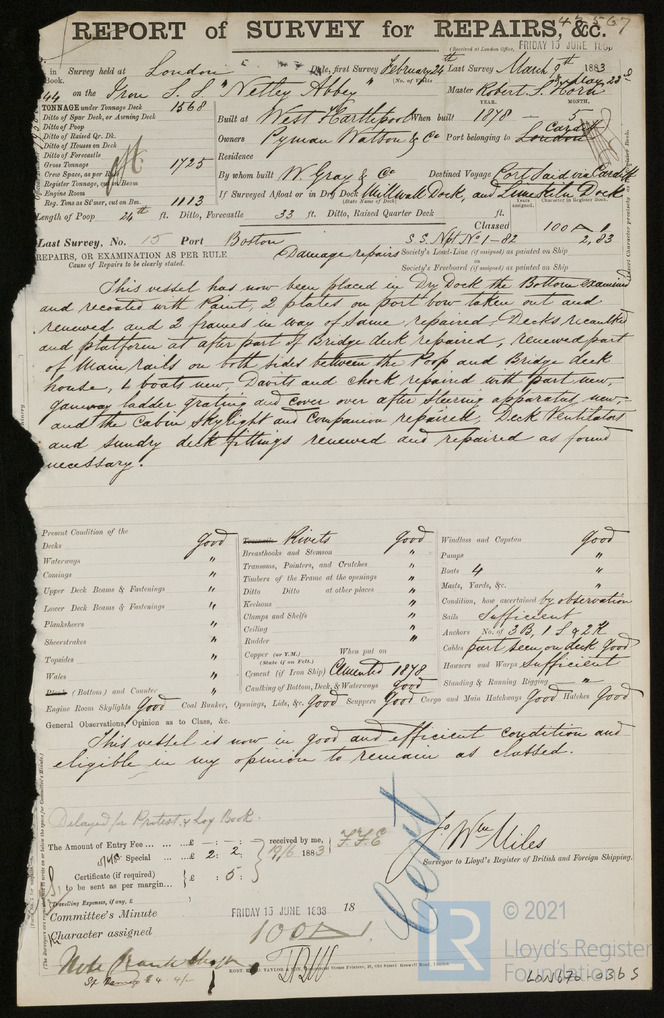 REPORT of SURVEY for REPAIRS, &c.
(Received at London Office, FRIDAY 15 JUNE 1883
in Survey held at London Date, first Survey February 24th Last Survey March 9th 1883
Book. (No. of Visits
44 on the Iron S.S "Netley Abbey" Master Robert S. Corn
TONNAGE under Tonnage Deck 1568
Ditto of Spar Deck, or Awning Deck
Ditto of Poop
Ditto of Raised Qr. Dk.
Ditto of Houses on Deck
Ditto of Forecastle
Gross Tonnage 1725
Crew Space, as per
Register Tonnage,
Engine Room
Reg. Tons as St'mer, cut on Bm. 1113
YEAR. MONTH.
Built at West Hartlepool When built 1878 - 5
Owners Pyman Watson & Co Port belonging to London Cardiff
Residence
By whom built W. Gray & Co Destined Voyage Port Said via Cardiff
If Surveyed Afloat or in Dry Dock Millwall Dock, and Limekiln Dock
(State Name of Dock)
Length of Poop 24th ft. Ditto, Forecastle 33 ft. Ditto, Raised Quarter Deck ft.
Years assigned. Character in Register Book.
Classed 100 A
Last Survey, No. 15 Port Boston S.S. Npt No 1-82 2,83
REPAIRS, OR EXAMINATION AS PER RULE Damage repairs Society's Load-Line (if assigned) as painted on Ship
Cause of Repairs to be clearly stated. Society's Freeboard (if assigned) as painted on Ship
This vessel has now been placed in Dry Dock the Bottom examined
and recoated with Paint, 2 plates on port bow taken out and
renewed and 2 frames in way of same repaired, Decks recaulked
and platform at after part of Bridge deck repaired, renewed part
of Main rails on both sides between the Poop and Bridge deck
house, 4 boats new, Davits and chock repaired with part new,
gangway ladder grating and cover over after steering apparatus, new,
and the Cabin Skylight and Companion repaired, Deck Ventilators
and sundry deck fittings renewed and repaired as found
necessary.
Present Condition of the
Decks good
Waterways "
Comings "
Upper Deck Beams & Fastenings "
Lower Deck Beams & Fastenings "
Planksheers "
Sheerstrakes "
Topsides "
Wales "
(Bottom) and Counter "
Rivets good
Breasthooks and Stemson "
Transoms, Pointers, and Crutches "
Timbers of the Frame at the openings "
Ditto Ditto at other places "
Keelsons "
Clamps and Shelfs "
Ceiling "
Rudder "
Copper (or Y.M.) When put on
(State if on Felt.)
Cement (if Iron Ship) Cemented 1878
Caulking of Bottom, Deck, & Waterways Good
Windlass and Capstan good
Pumps "
Boats 4 "
Masts, Yards, &c. "
Condition, how ascertained by observation
Sails Sufficient
Anchors No. of 3B, 1 S. & 2K
Cables part seen on deck Good
Hawsers and Warps Sufficient
Standing & Running Rigging "
Engine Room Skylights Good Coal Bunker, Openings, Lids, &c. Good Scuppers Good Cargo and Main Hatchways Good Hatches Good
General Observations, Opinion as to Class, &c.
This vessel is now in good and efficient condition and
eligible in my opinion to remain as classed.
Delayed for Protest & Log Book.
The Amount of Entry Fee ... £ : :
Special ... £ 2 : 2 :
received by me, F.F.E
19/6 1883
Certificate (if required)
to be sent as per margin... £ : 5 :
(Travelling Expenses, if any, £
Cert
Jo Wm Miles
Surveyor to Lloyd's Register of British and Foreign Shipping.
Committee's Minute FRIDAY 15 JUNE 1883 18
Character assigned 100A
© 2021
Lloyd's Register
Foundation
LR
LON670-0365